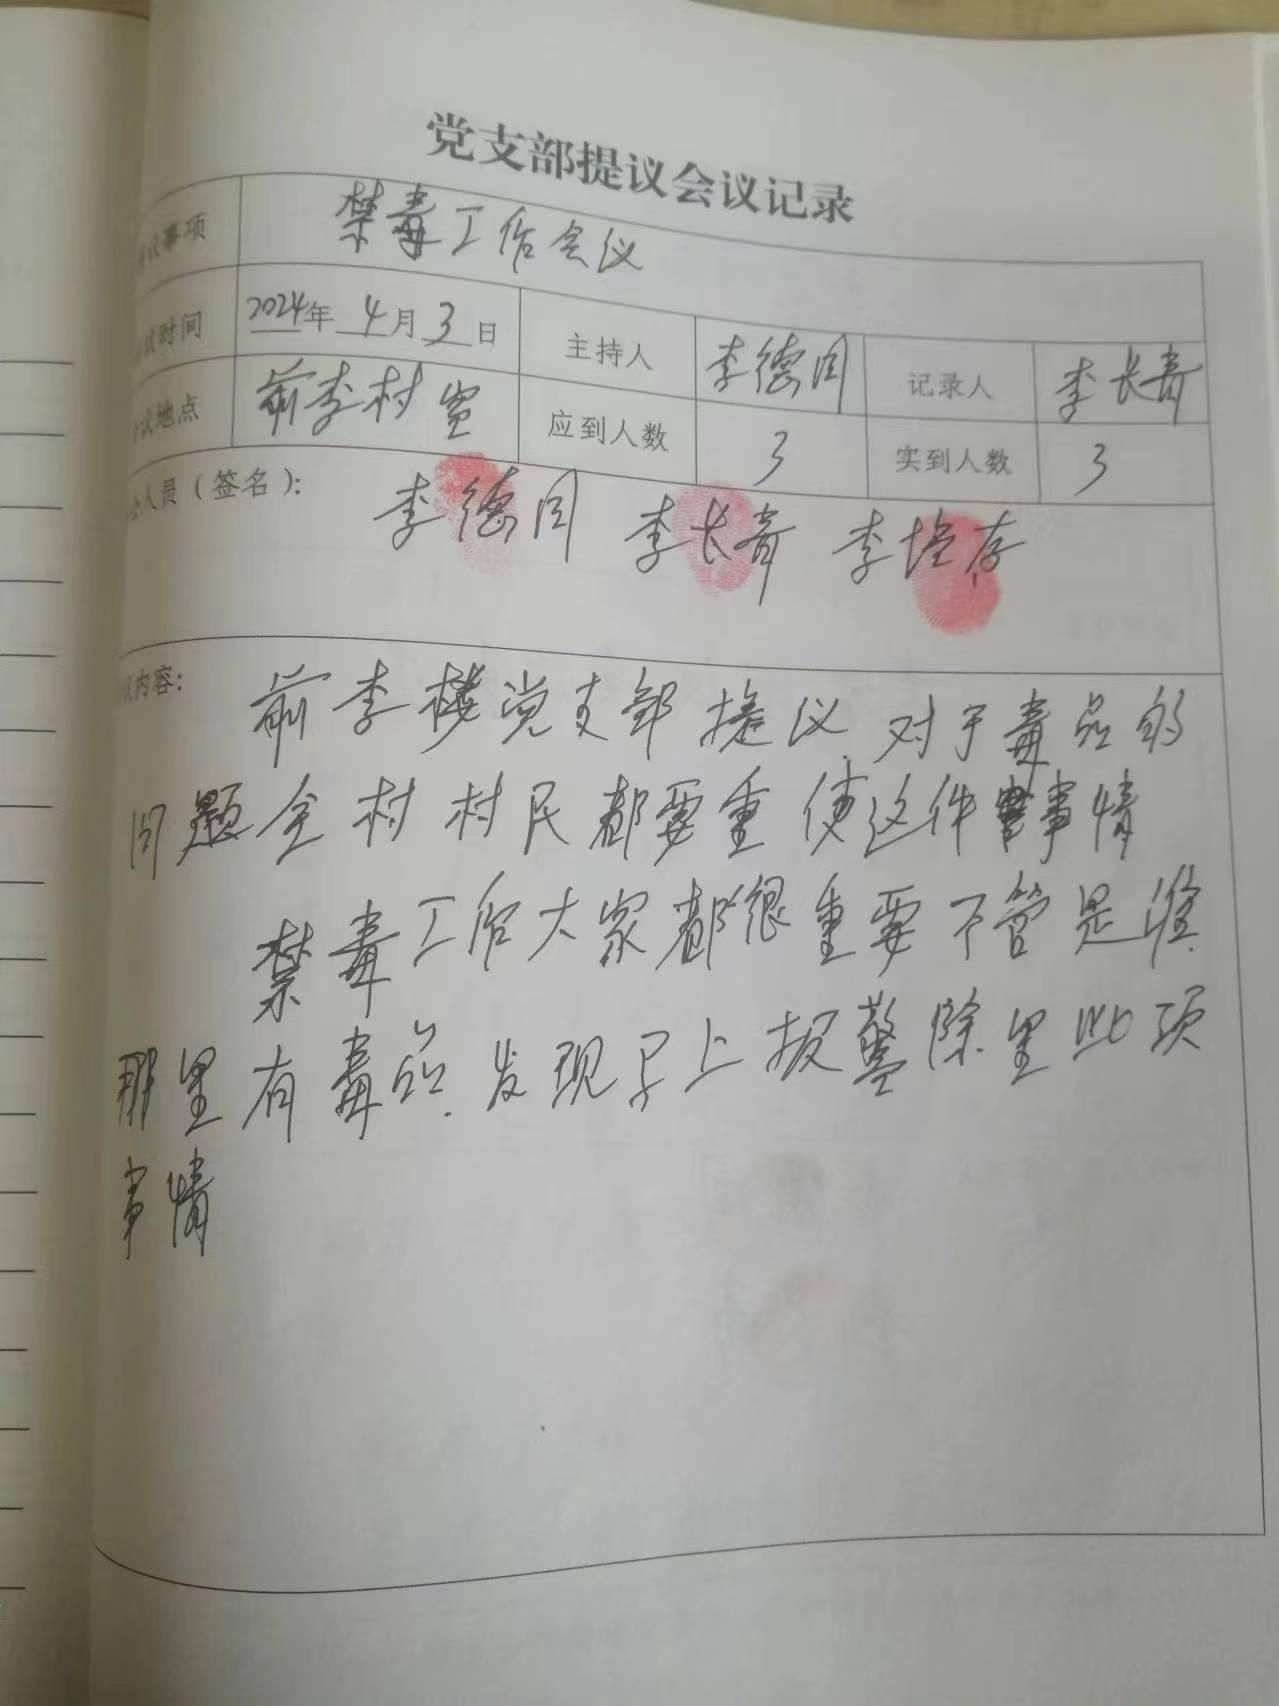 党支部提议会议记录
议事项 禁毒工作会议
议时间 2024年 4月 3日 主持人 李德同 记录人 李长青
议地点 前李村室 应到人数 3 实到人数 3
会人员（签名）： 李德同 李长青 李培存
议内容： 前李楼党支部提议 对于毒品的
问题全村村民都要重使这件事情
禁毒工作大家都很重要不管是谁
那里有毒品.发现早上报警除里此项
事情